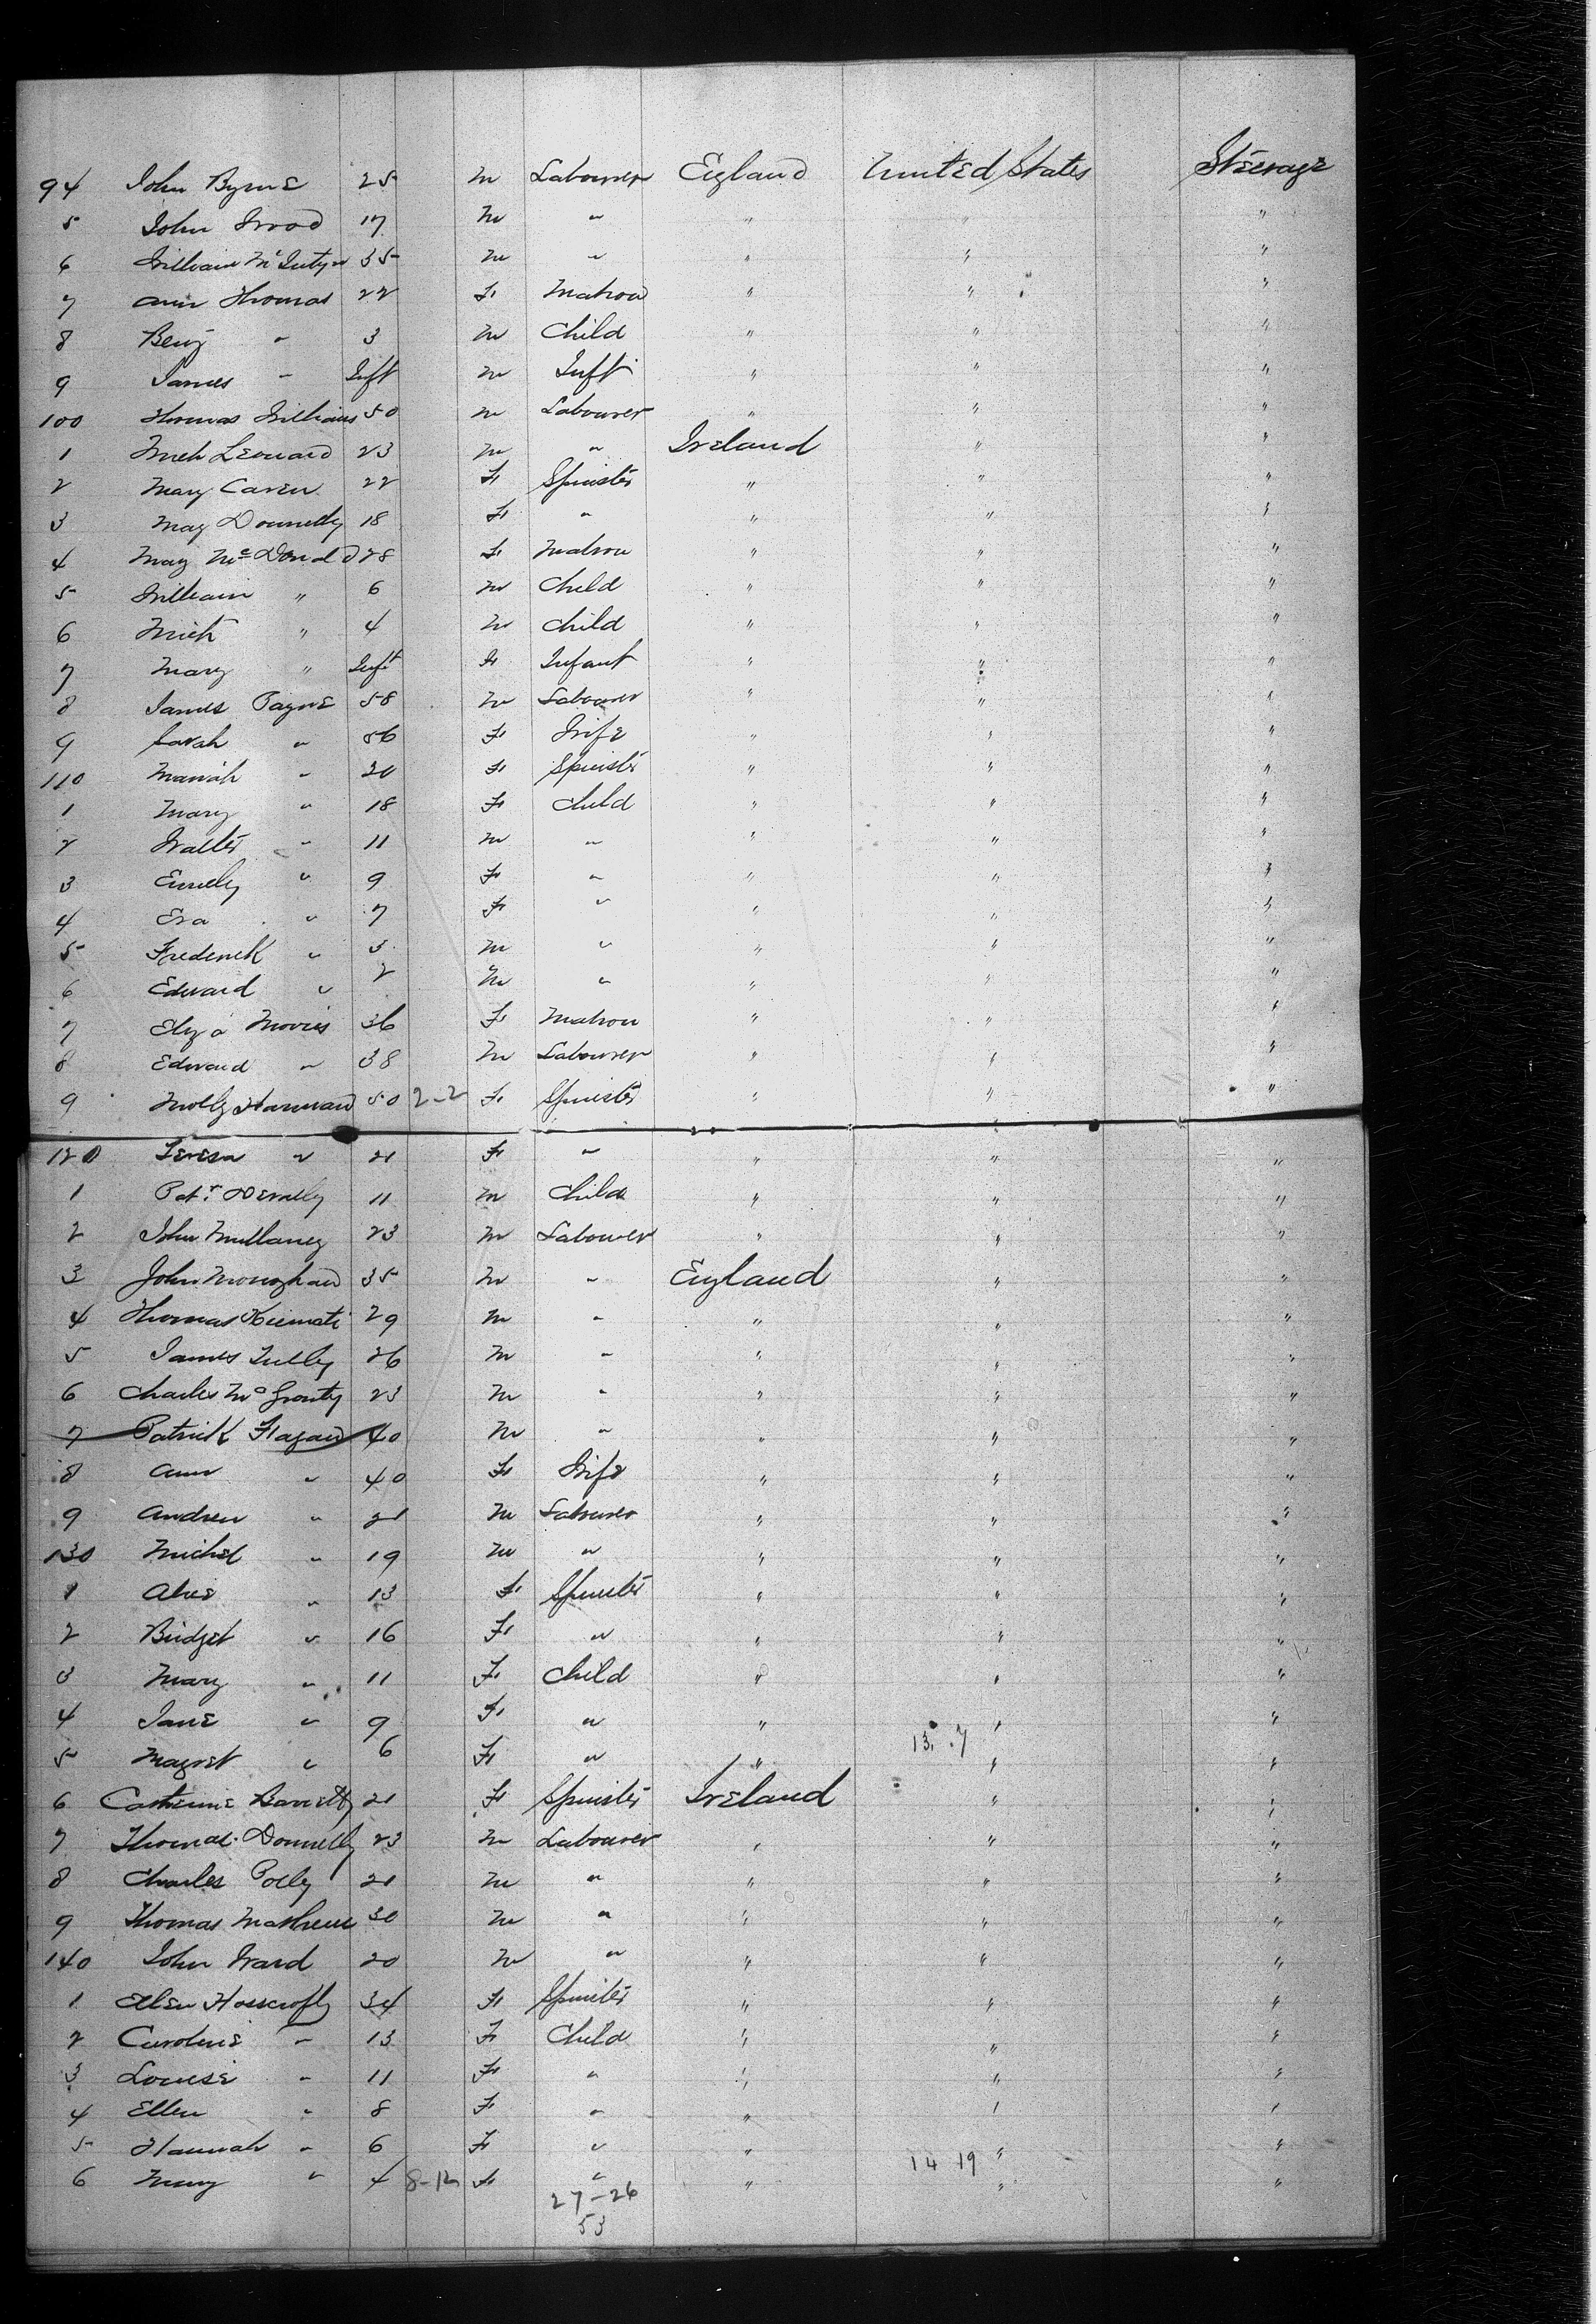 94 John Byrne 25 m Labourer England United States Steerage
5 John Wood 17 m " " " "
6 William McIntyre 35 m " " " "
7 Ann Thomas 22 F Matron " " "
8 Benj " 3 m Child " " "
9 James " Inft m Inft " " "
100 Thomas Williams 50 m Labourer " " "
1 Mich Leonard 23 m " Ireland " "
2 Mary Caven 22 F Spinster " " "
3 May Donnelly 18 F " " " "
4 May McDonald 28 F Matron " " "
5 William " 6 m Child " " "
6 Mich " 4 m Child " " "
7 Mary " Inft F Infant " " "
8 James Payne 58 m Labourer " " "
9 Sarah " 56 F Wife " " "
110 Mariah " 20 F Spinster " " "
1 Mary " 18 F Child " " "
2 Walter " 11 m " " " "
3 Emely " 9 F " " " "
4 Eva " 7 F " " " "
5 Frederick " 3 m " " " "
6 Edward " 2 m " " " "
7 Eliza Morris 36 F Matron " " "
8 Edward " 38 m Labourer " " "
9 Molly Hanward 50 2-2 F Spinster " " "
120 Teresa " 21 F " " " "
1 Patr 11 m Child " " "
2 John Mullaney 23 m Labourer " " "
3 John Monoghan 35 m " England " "
4 Thomas 29 m " " " "
5 James Tully 26 m " " " "
6 Charles McGrouty 23 m " " " "
7 Patrick Flagan 40 m " " " "
8 Ann " 40 F Wife " " "
9 Andrew " 21 m Labourer " " "
130 Michel " 19 m " " " "
1 Alice " 13 F Spinster " " "
2 Bridget " 16 F " " " "
3 Mary " 11 F Child " " "
4 Jane " 9 F " " " "
5 Magret " 6 F " " 13. .7 " "
6 Catherine Barrett 21 F Spinster Ireland " "
7 Thomas Donnelly 23 m Labourer " " "
8 Charles Polly 21 m " " " "
9 Thomas Mathews 30 m " " " "
140 John Ward 20 m " " " "
1 Ellen Hosscrofty 34 F Spinster " " "
2 Caroline " 13 F Child " " "
3 Louise " 11 F " " " "
4 Ellen " 8 F " " " "
5 Hannah " 6 F " " " "
6 Mary " 4 8-12 F " " 14 19 " "
27-26
53